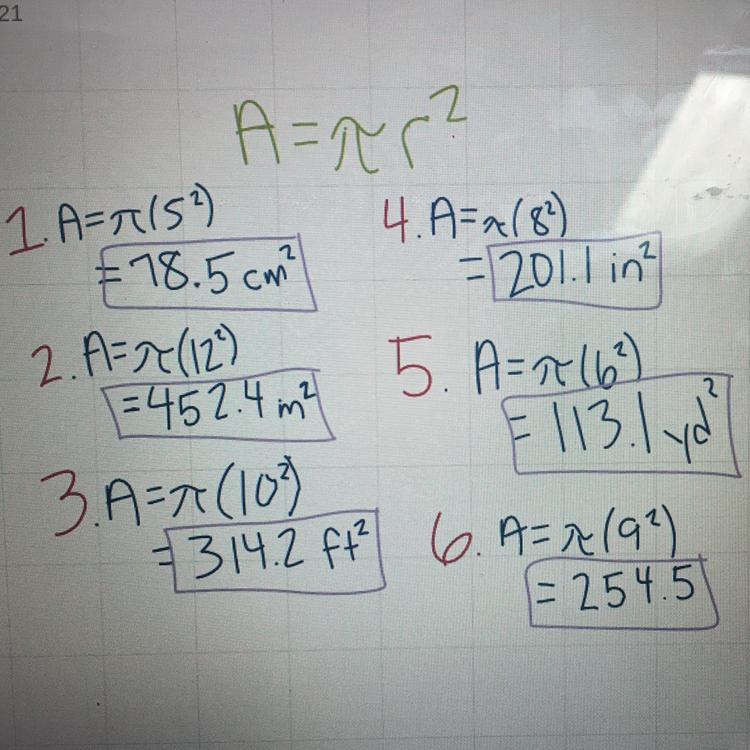 21
A=πr²
1. A=π(5²)
=78.5 cm²
2. A=π(12²)
=452.4 m²
3. A=π(10²)
=314.2 ft²
4. A=π(8²)
=201.1 in²
5. A=π(6²)
=113.1 yd²
6. A=π(9²)
=254.5